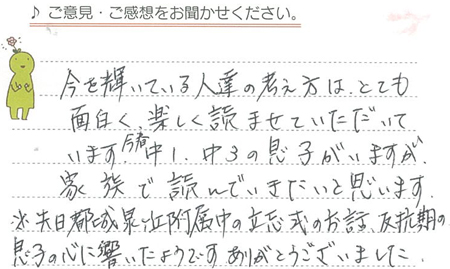 ♪ ご意見・ご感想をお聞かせください。
今を輝いている人達の考え方は、とても
面白く、楽しく読ませていただいて
います。今春中1、中3の息子がいますが、
家族で読んでいきたいと思います。
※先日都城泉ヶ丘附属中の立志式のお話、反抗期の
息子の心に響いたようです ありがとうございました。